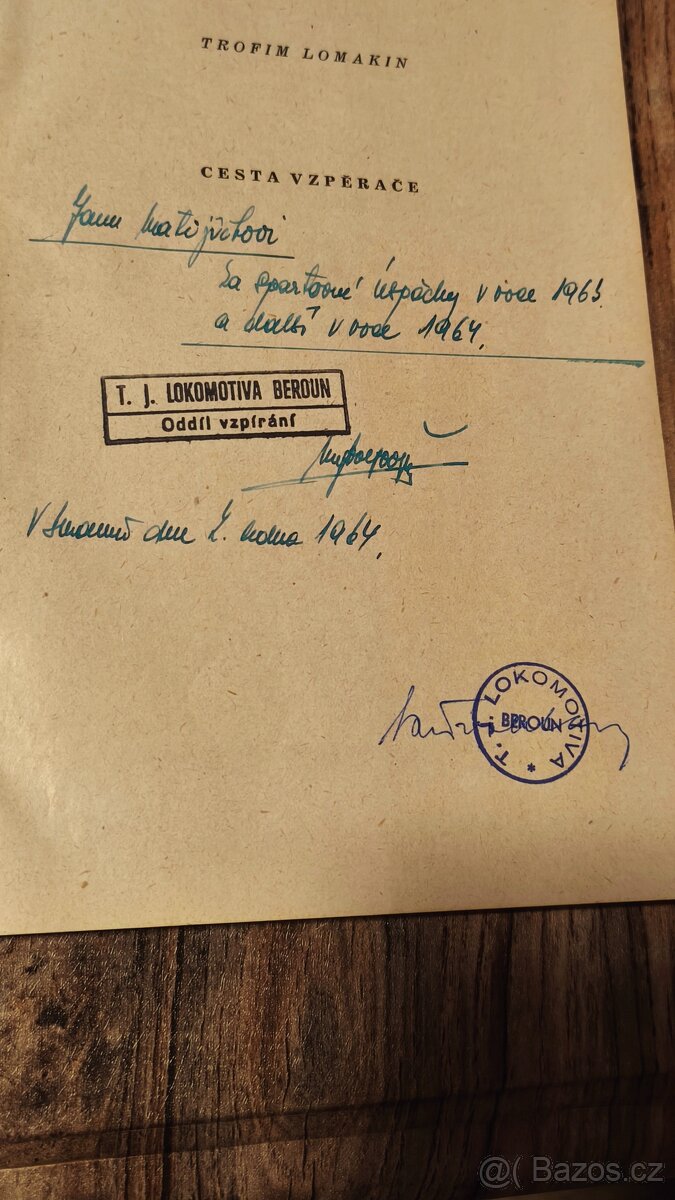 TROFIM LOMAKIN
CESTA VZPĚRAČE
Janu Matějčkovi
Za sportovní úspěchy v roce 1963.
a další v roce 1964.
T. J. LOKOMOTIVA BEROUN
Oddíl vzpírání
V dne 2. ledna 1964.
T. J. LOKOMOTIVA
BEROUN
@( Bazos.cz